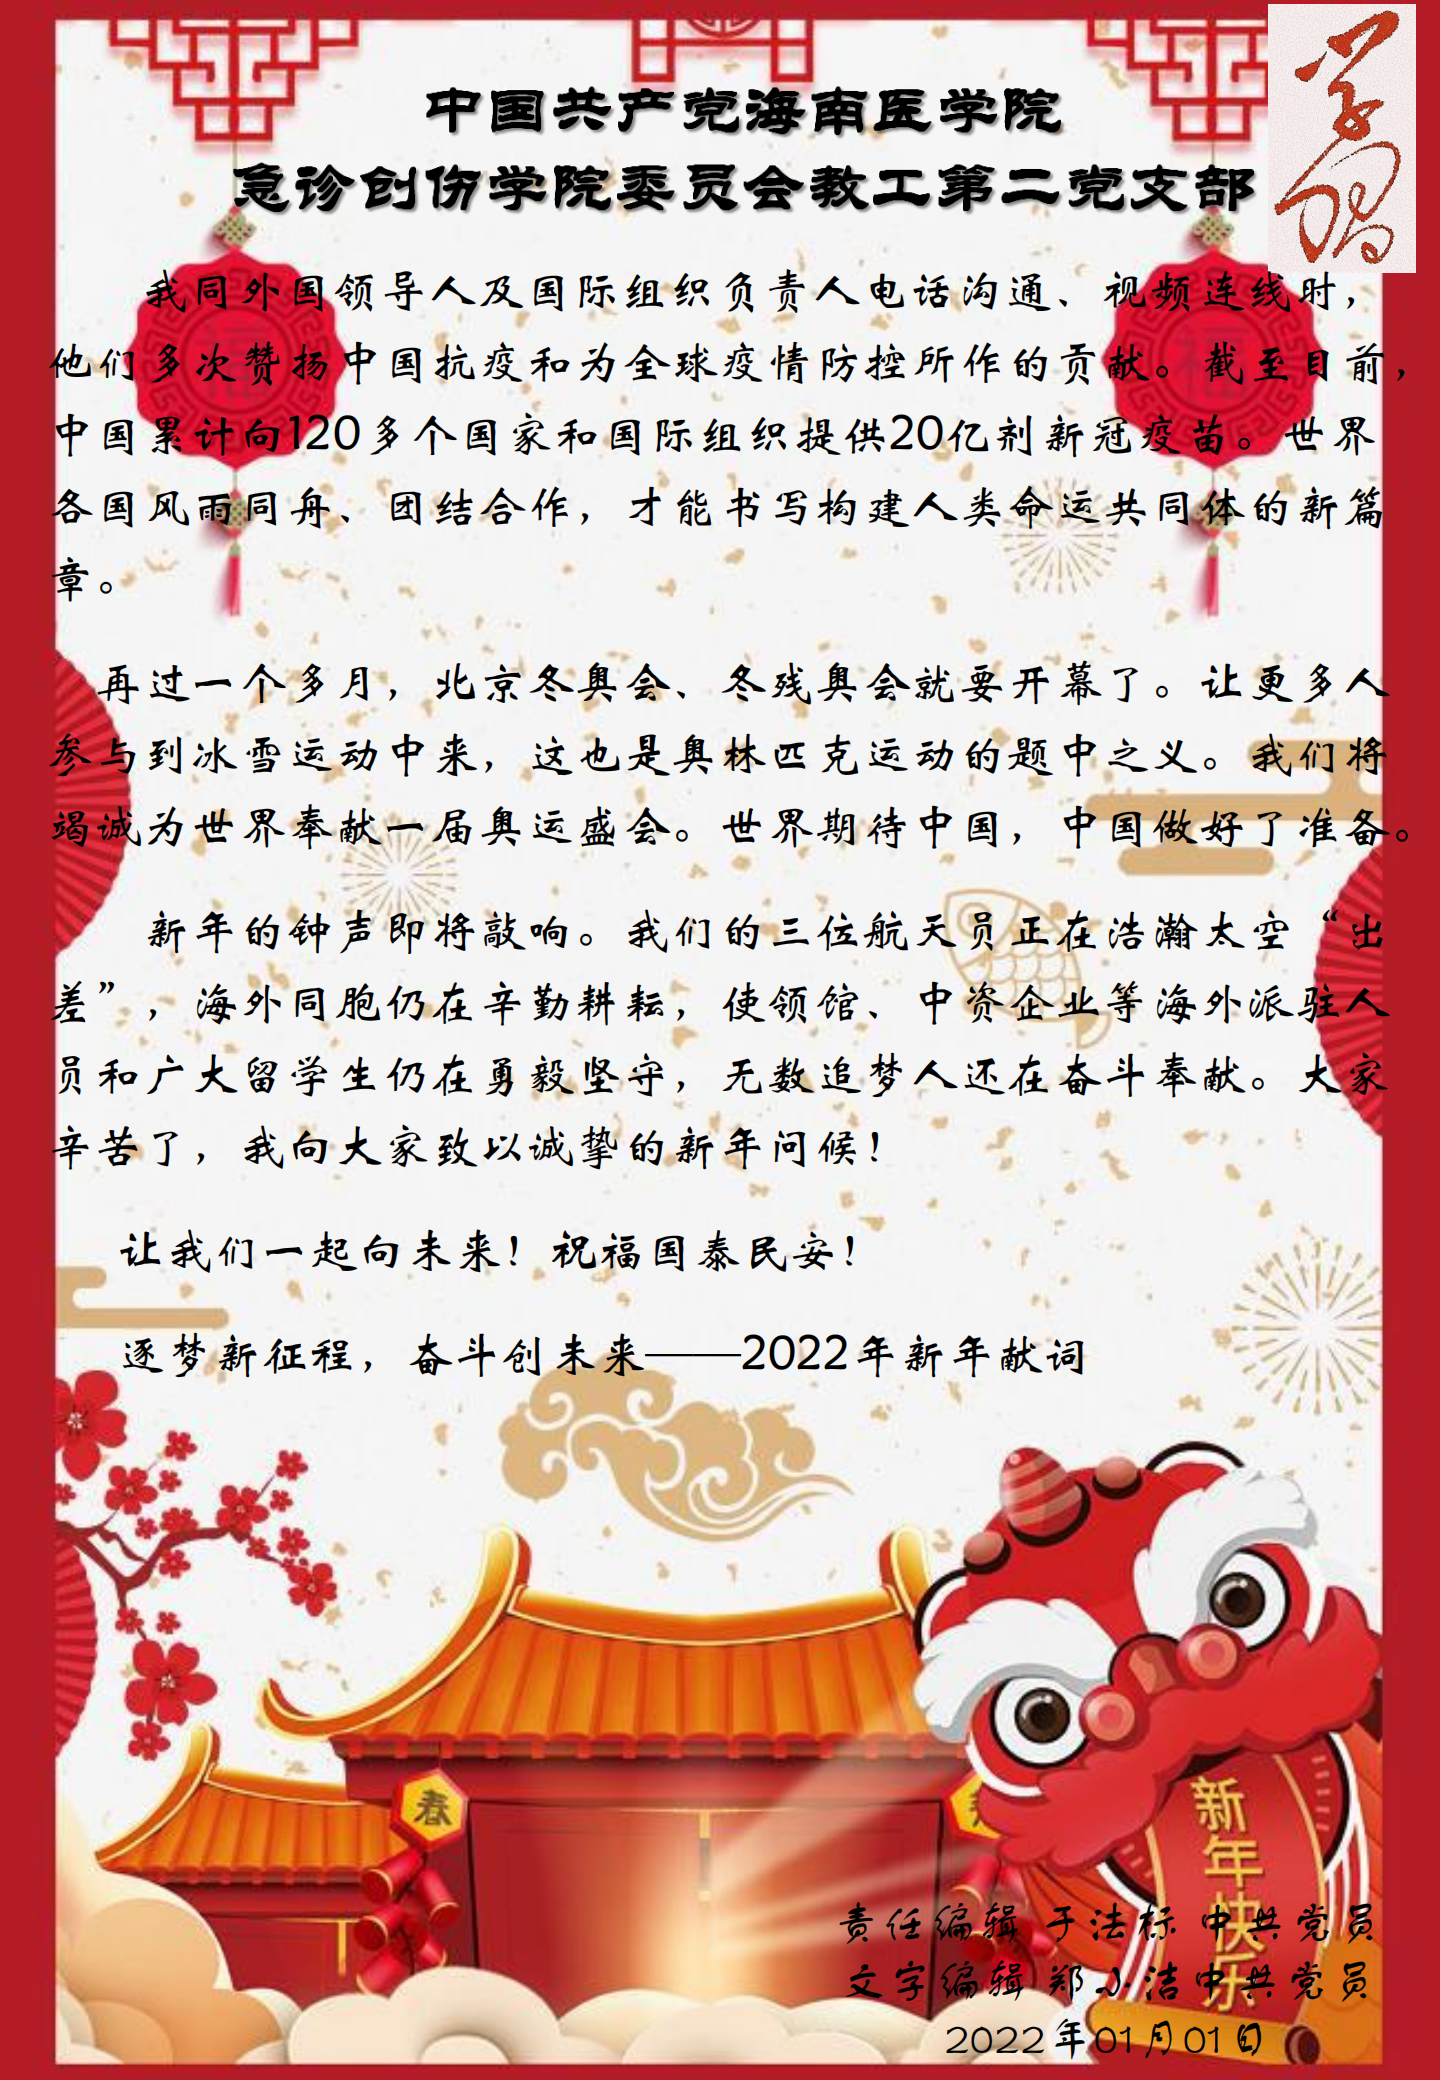 学习
中国共产党海南医学院
急诊创伤学院委员会教工第二党支部
我同外国领导人及国际组织负责人电话沟通、视频连线时，
他们多次赞扬中国抗疫和为全球疫情防控所作的贡献。截至目前，
中国累计向120多个国家和国际组织提供20亿剂新冠疫苗。世界
各国风雨同舟、团结合作，才能书写构建人类命运共同体的新篇
章。
再过一个多月，北京冬奥会、冬残奥会就要开幕了。让更多人
参与到冰雪运动中来，这也是奥林匹克运动的题中之义。我们将
竭诚为世界奉献一届奥运盛会。世界期待中国，中国做好了准备。
新年的钟声即将敲响。我们的三位航天员正在浩瀚太空“出
差”，海外同胞仍在辛勤耕耘，使领馆、中资企业等海外派驻人
员和广大留学生仍在勇毅坚守，无数追梦人还在奋斗奉献。大家
辛苦了，我向大家致以诚挚的新年问候！
让我们一起向未来！祝福国泰民安！
逐梦新征程，奋斗创未来——2022年新年献词
春
新年快乐
责任编辑 于法标 中共党员
文字编辑 郑小洁中共党员
2022年01月01日